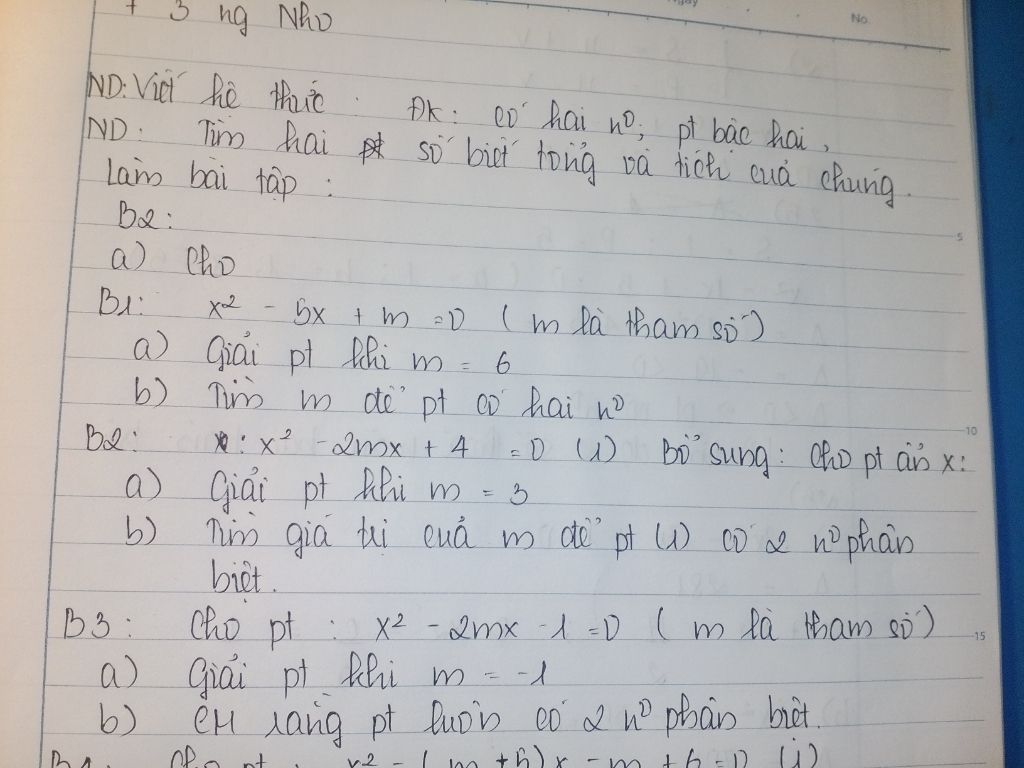 + 3 ng Nho
No.
ND: Viết hệ thức . ĐK: có hai nº; pt bậc hai,
ND: Tìm hai số biết tổng và tích của chúng.
Làm bài tập:
B2:
a) Cho
B1: x² - 5x + m = 0 (m là tham số)
a) Giải pt khi m = 6
b) Tìm m để pt có hai nº
B2: x² - 2mx + 4 = 0 (1) Bổ sung: Cho pt ẩn x:
a) Giải pt khi m = 3
b) Tìm giá trị của m để pt (1) có 2 nº phân
biệt.
B3: Cho pt: x² - 2mx - 1 = 0 (m là tham số)
a) Giải pt khi m = -1
b) CM rằng pt luôn có 2 nº phân biệt.
Cho pt: x² - (m + 5)x - m + 6 = 0 (1)
5
10
15